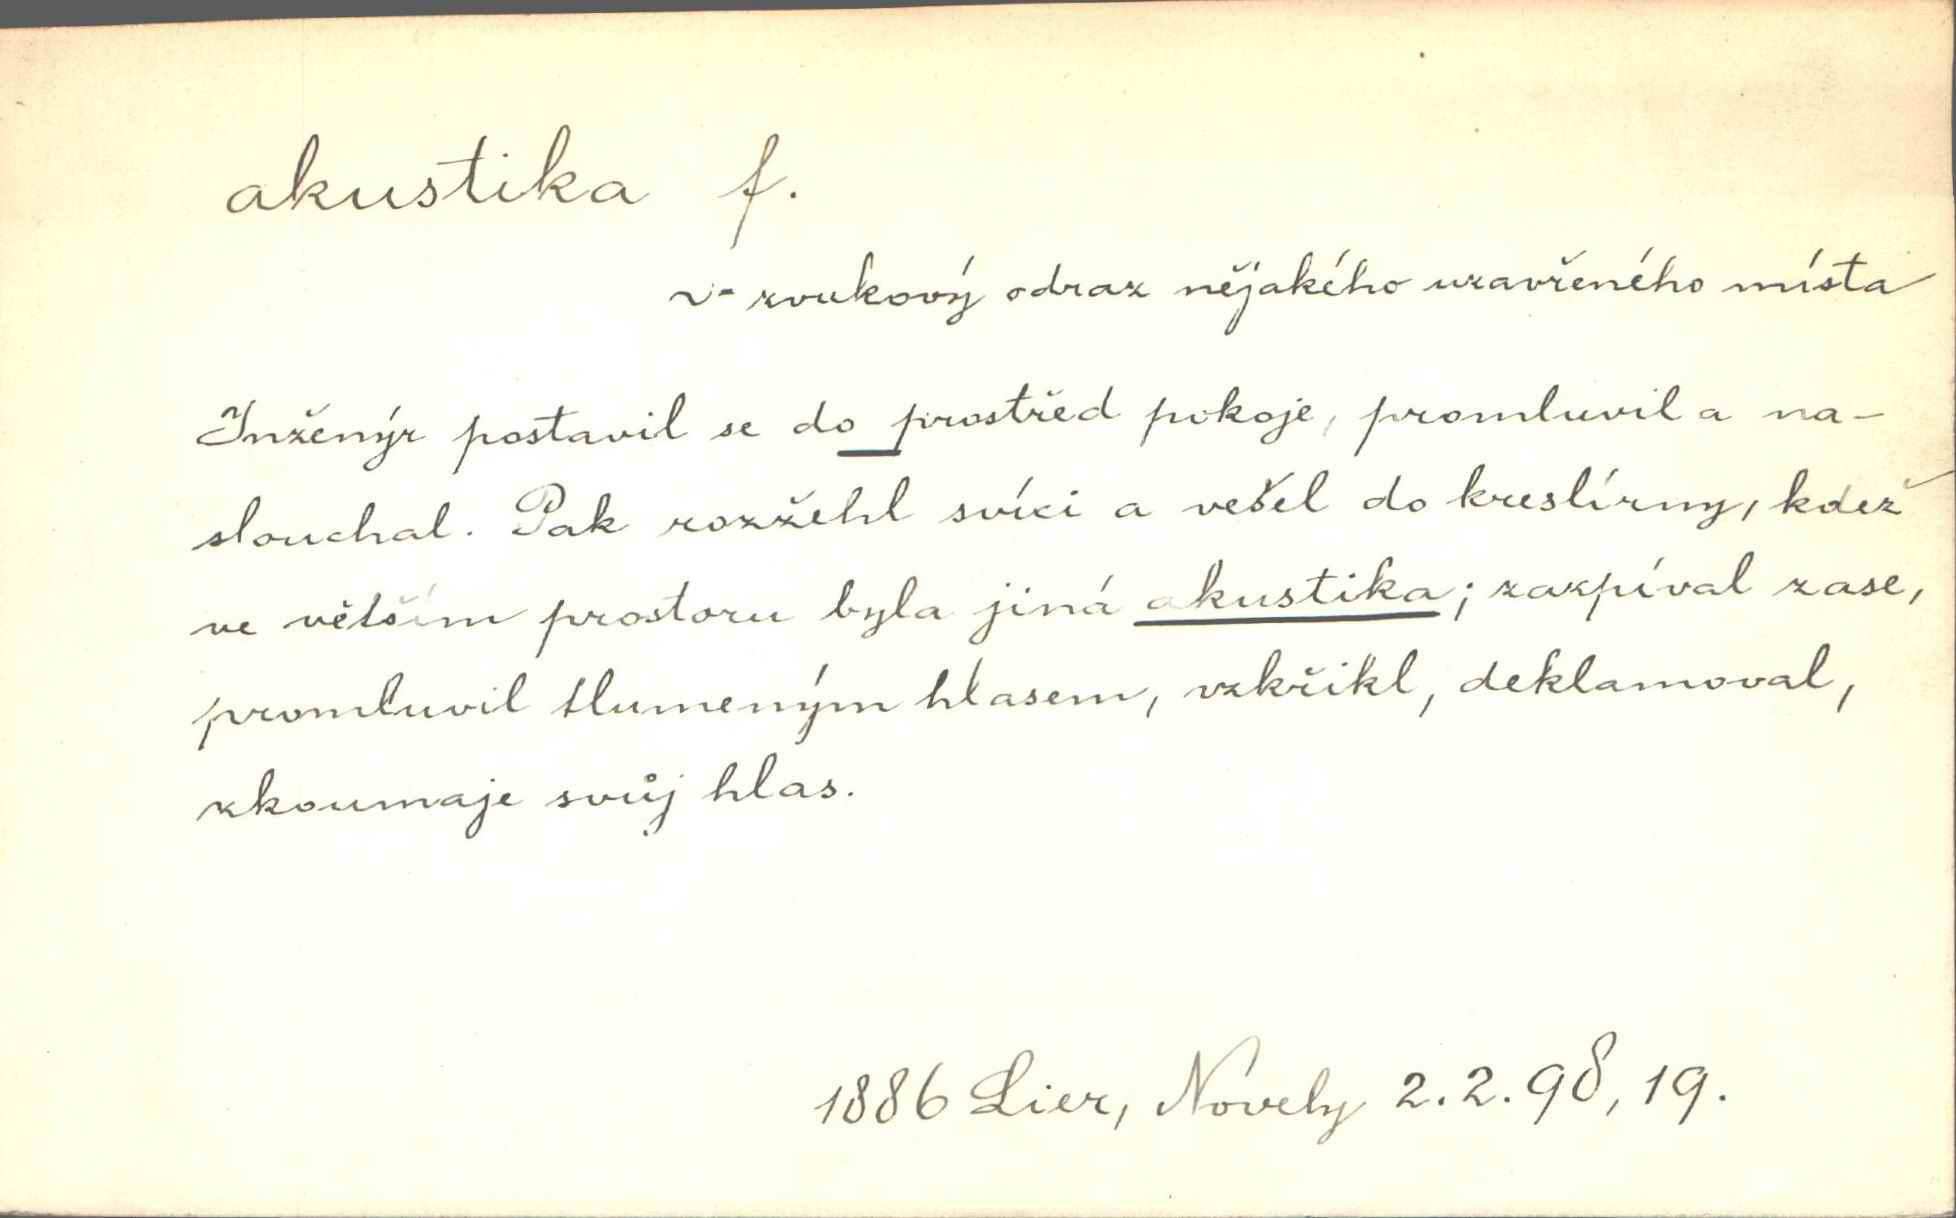 akustika f.
v- zvukový odraz nějakého uzavřeného místa
Inženýr postavil se do prostřed pokoje, promluvil a na-
slouchal. Pak rozžehl svíci a vešel do kreslírny, kdež
ve větším prostoru byla jiná akustika; zazpíval zase,
promluvil tlumeným hlasem, vzkřikl, deklamoval,
zkoumaje svůj hlas.
1886 Lier, Novely 2.2.98, 19.